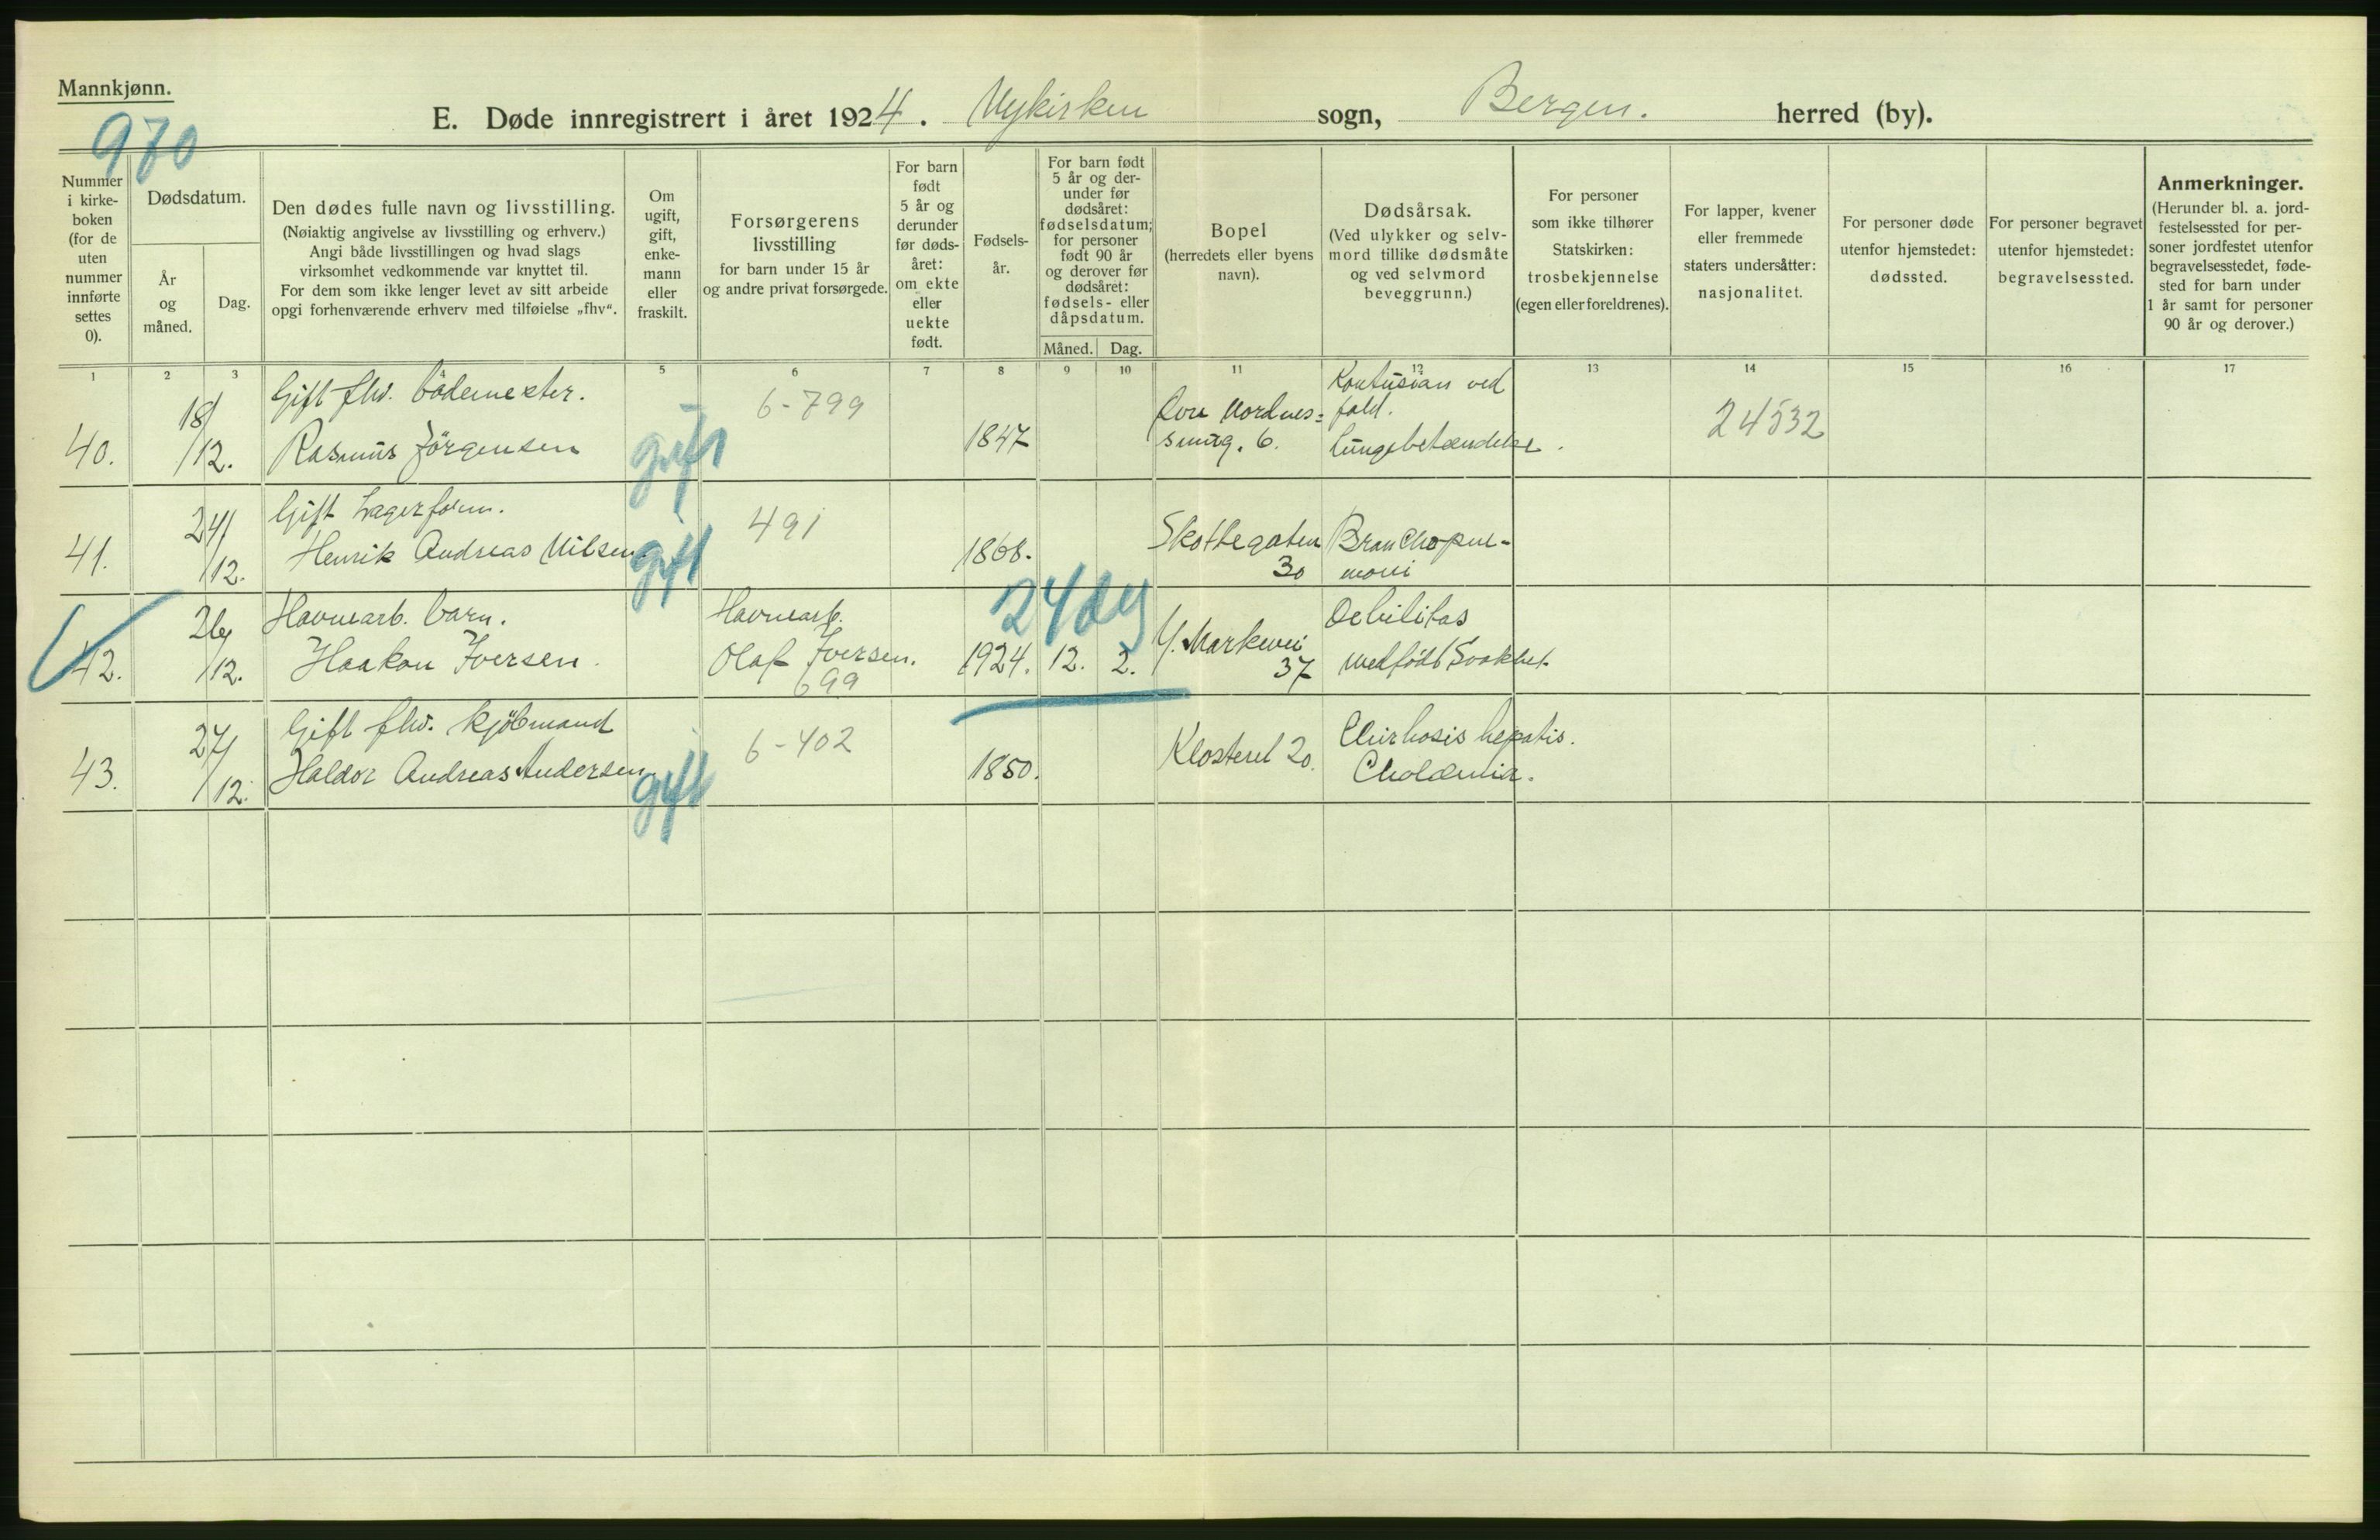 Mannkjønn.
970
E. Døde innregistrert i året 1924. Nykirken sogn, Bergen. herred (by).
Nummer i kirkeboken (for de uten nummer innførte settes 0).
Dødsdatum.
År og måned.
Dag.
Den dødes fulle navn og livsstilling.
(Nøiaktig angivelse av livsstilling og erhverv.)
Angi både livsstillingen og hvad slags
virksomhet vedkommende var knyttet til.
For dem som ikke lenger levet av sitt arbeide
opgi forhenværende erhverv med tilføielse „fhv“.
Om ugift, gift, enkemann eller fraskilt.
Forsørgerens livsstilling
for barn under 15 år
og andre privat forsørgede.
For barn født 5 år og derunder før dødsåret: om ekte eller uekte født.
Fødselsår.
For barn født 5 år og derunder før dødsåret: fødselsdatum; for personer født 90 år og derover før dødsåret: fødsels- eller dåpsdatum.
Måned. Dag.
Bopel
(herredets eller byens navn).
Dødsårsak.
(Ved ulykker og selvmord tillike dødsmåte og ved selvmord beveggrunn.)
For personer som ikke tilhører Statskirken: trosbekjennelse (egen eller foreldrenes).
For lapper, kvener eller fremmede staters undersåtter: nasjonalitet.
For personer døde utenfor hjemstedet: dødssted.
For personer begravet utenfor hjemstedet: begravelsessted.
Anmerkninger.
(Herunder bl. a. jordfestelsessted for personer jordfestet utenfor begravelsesstedet, fødested for barn under 1 år samt for personer 90 år og derover.)
1 2 3 4 5 6 7 8 9 10 11 12 13 14 15 16 17
40. 18/12. Gift fhv. bødemester.
Rasmus Jörgensen
gift
6-799
1847
Nordnes=
smug. 6.
Kontusion ved
fald.
Lungebetændelse.
24532
41. 24/12. Gift Lagerform.
Henrik Andreas Nilsen
gift
491
1868.
Skottegaten
30
Bronchopneu-
moni
42. 26/12. Havnearb. barn.
Haakon Iversen.
Havnearb.
Olaf Iversen.
699
24 dg
1924. 12. 2.
Y. Markevei
37
Debilitas
medfødt Svakhet.
43. 27/12. Gift fhv. kjöbmand
Haldor Andreas Andersen
gift
6-402
1850.
Klosteret 20.
Chirhosis hepatis.
Cholæmia.